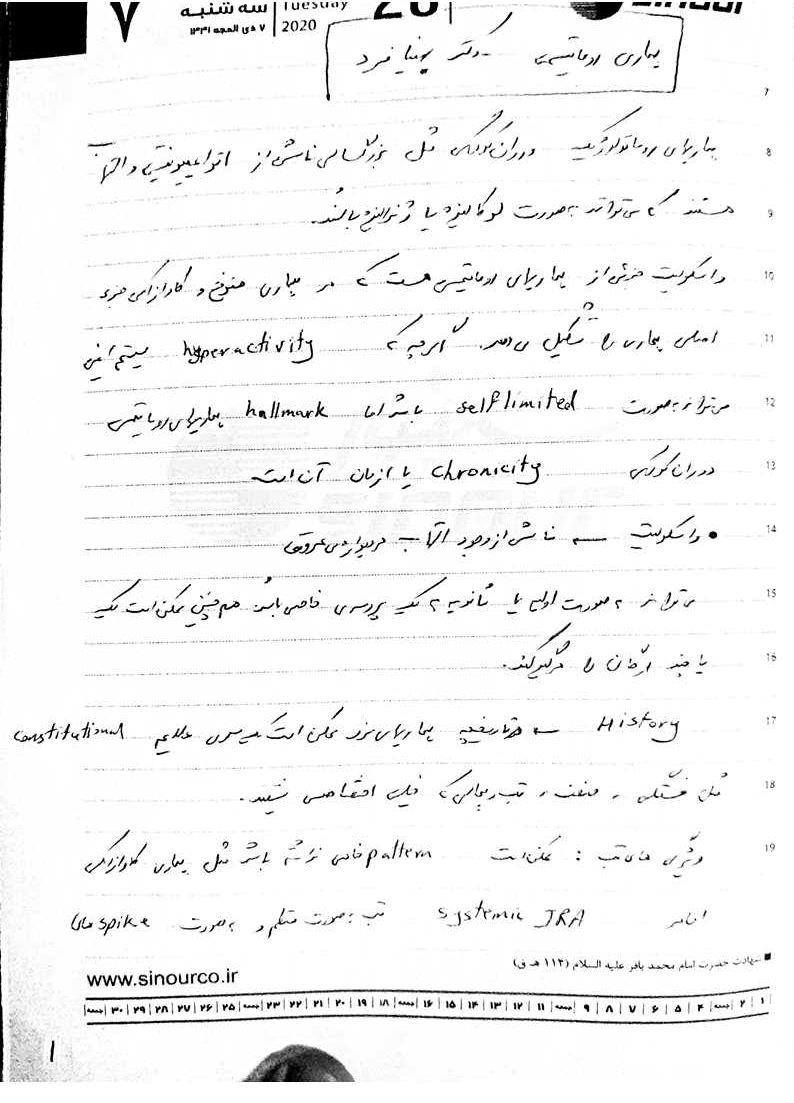 ۷ سه شنبه Tuesday 28
۷ ذی الحجه ۱۴۴۱ 2020
بیماری روماتیسمی - دکتر بهنیا فرد
7
8 بیماریهای روماتولوژیک دوران کودکی مثل بزرگسالی ناشی از انواع عفونتی و التهاب
9 هستند که می‌تواند بصورت لوکالیزه یا ژنرالیزه باشند.
10 واسکولیت بخشی از بیماریهای روماتیسمی هست که در بیماری هنوخ و کاوازاکی جزء
11 اصلی بیماری را تشکیل می‌دهد. اگرچه که hyperactivity سیستم ایمنی
12 می‌تواند بصورت self limited باشد اما hallmark بیماریهای روماتیسمی
13 دوران کودکی chronicity یا ازمان آن است
14 • واسکولیت ← ناشی از وجود التهاب در دیواره‌ی عروق
15 می‌تواند بصورت اولیه یا ثانویه به یک پروسه‌ی خاصی باشد همچنین ممکن است یک
16 یا چند ارگان را درگیر کند.
17 History ← در تاریخچه بیماریهای ممکن است یک سری علایم constitutional
18 مثل خستگی، ضعف، تب و بیحالی که خیلی اختصاصی نیستند.
19 ویژگی های تب : ممکن است pattern خاصی نداشته باشد مثل بیماری کاوازاکی
اما در systemic JRA تب بصورت منظم و بصورت spike های
■ شهادت حضرت امام محمد باقر علیه السلام (۱۱۴ هـ ق)
www.sinourco.ir
۱ | ۲ | جمعه | ۴ | ۵ | ۶ | ۷ | ۸ | ۹ | جمعه | ۱۱ | ۱۲ | ۱۳ | ۱۴ | ۱۵ | ۱۶ | جمعه | ۱۸ | ۱۹ | ۲۰ | ۲۱ | ۲۲ | ۲۳ | جمعه | ۲۵ | ۲۶ | ۲۷ | ۲۸ | ۲۹ | ۳۰ | جمعه
1